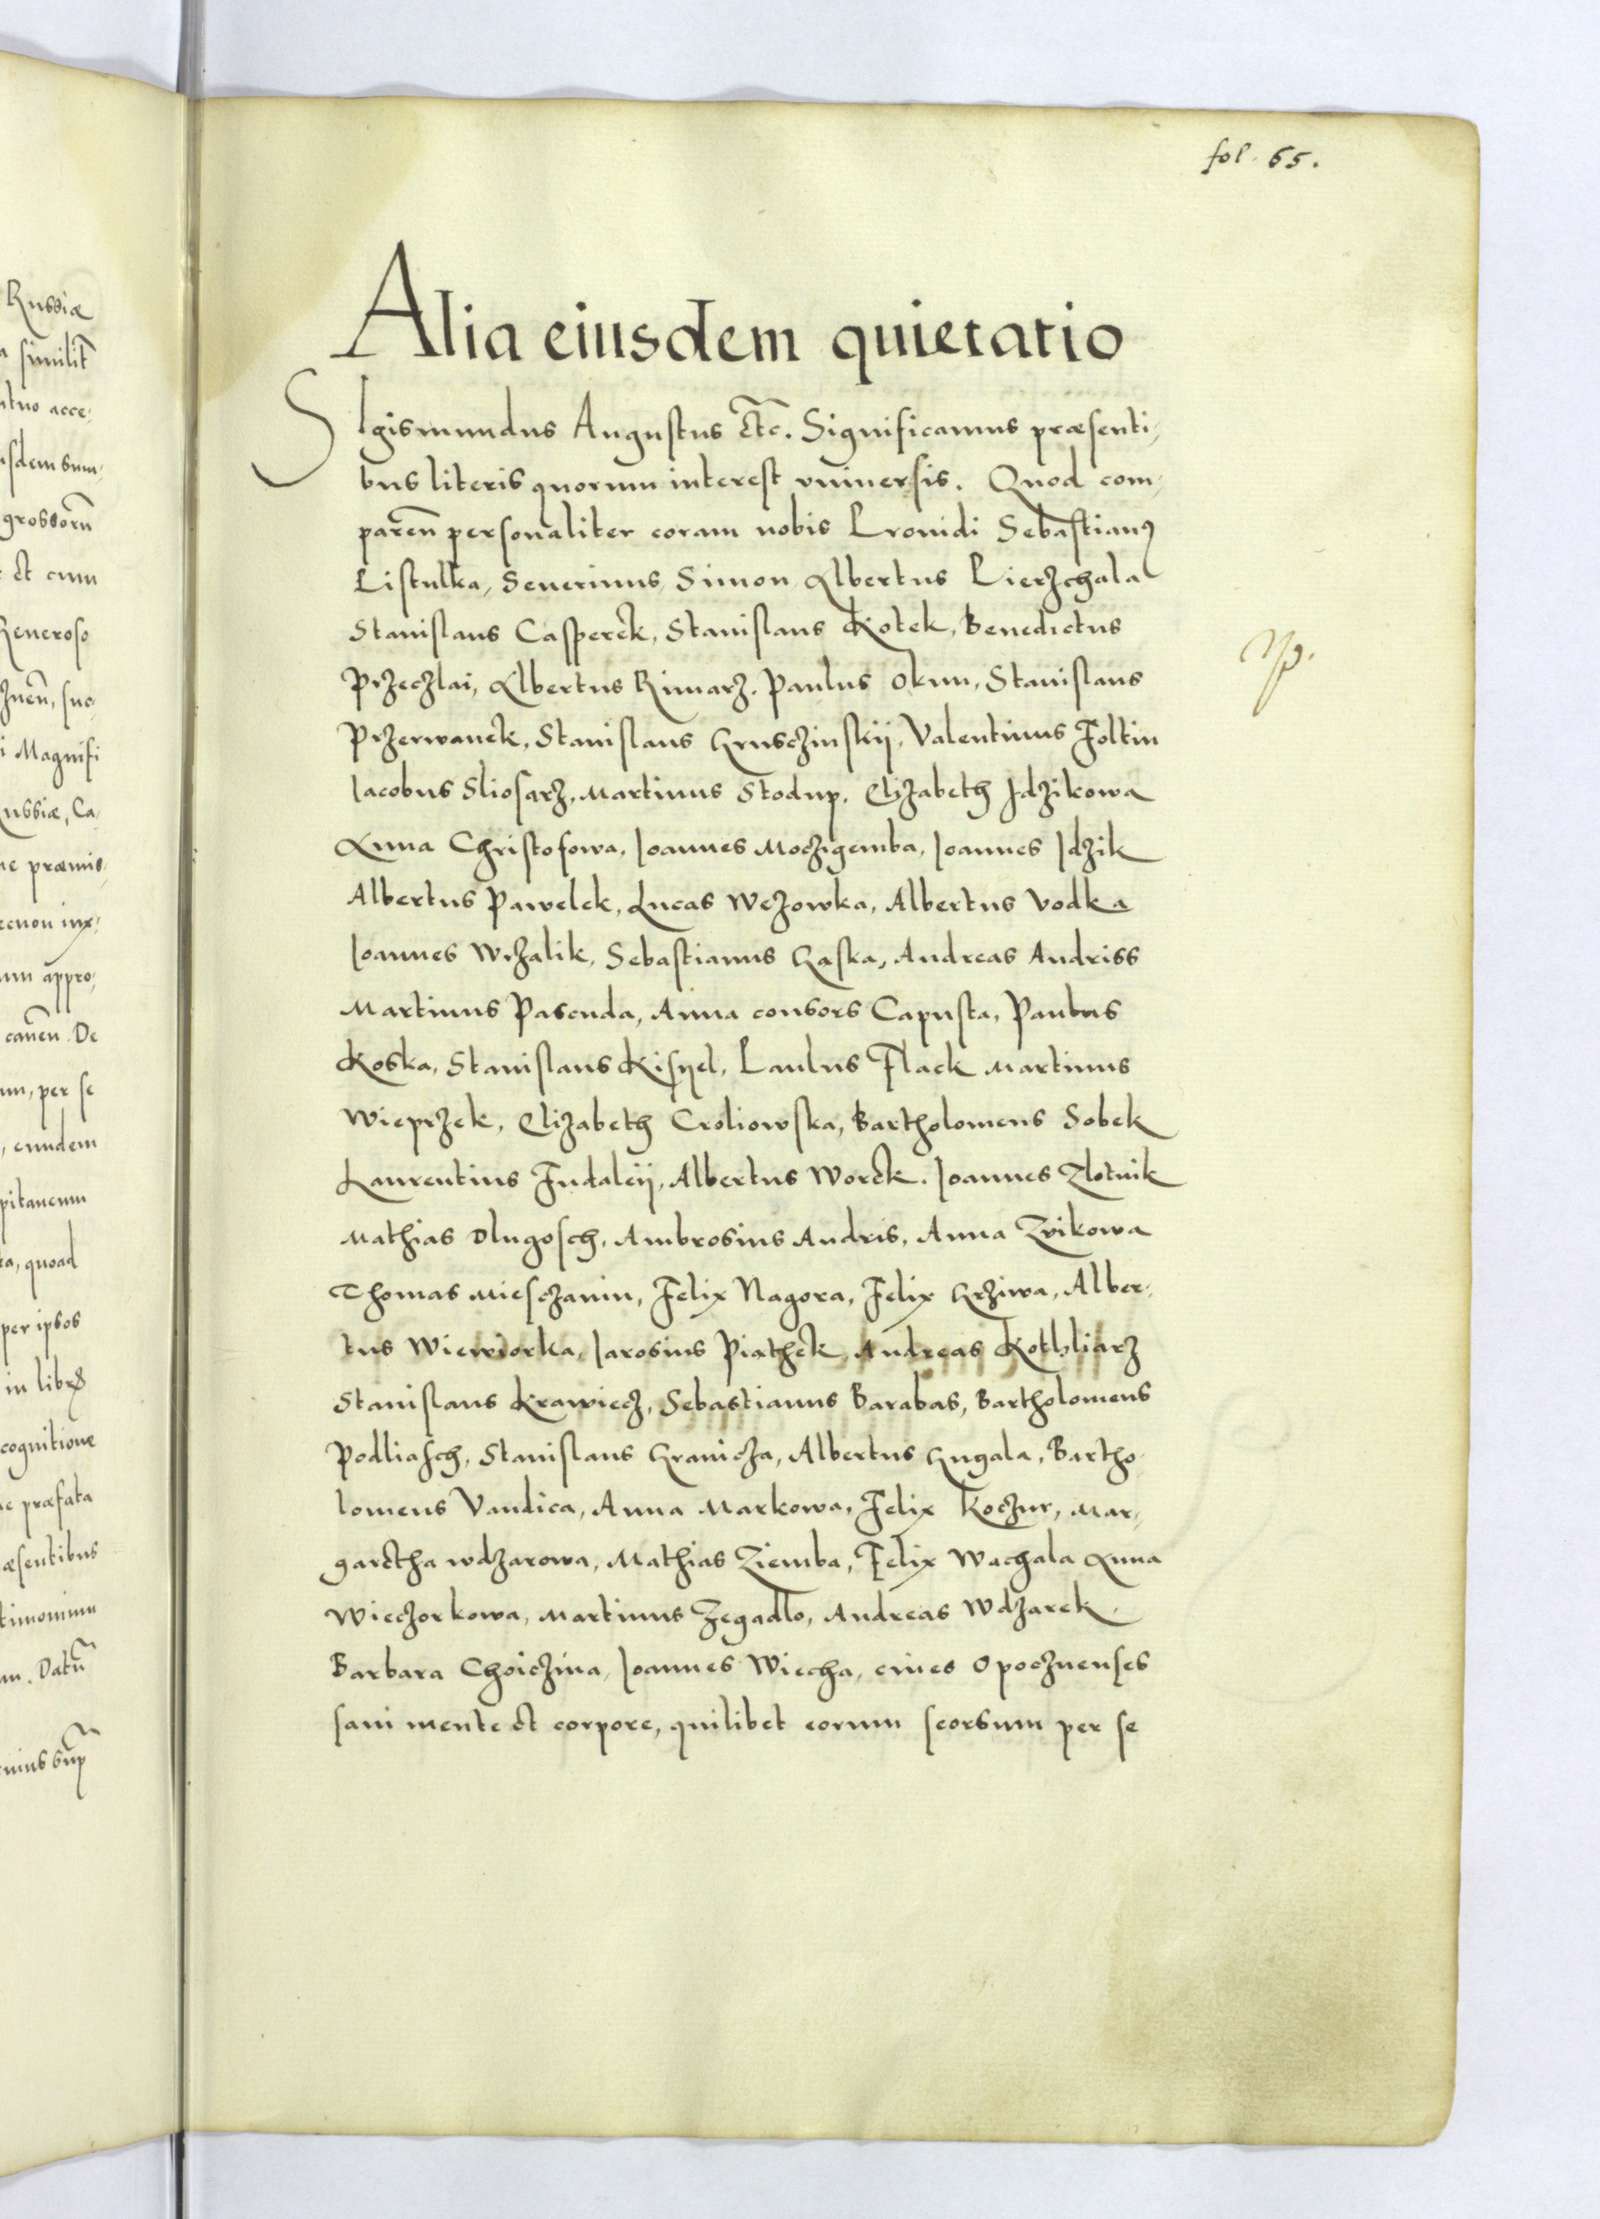 Russiæ
similit̃
ntuo acce-
usdem sum-
grossorũ
et cum
Generoso
znen̄, suo
i Magnifi
Russiæ, Ca-
ne præmis-
ecnon iux-
um appro-
caven̄. De
um, per se
, eundem
pitaneum
ra, quoad
per ipsos
in libr
cognitione
ne præfata
æsentibus
timonium
m. Datũ
fol. 65.
Alia eiusdem quietatio
SIgismundus Augustus etc. Significamus præsenti-
bus literis quorum interest vniuersis. Quod com-
paren̄ personaliter coram nobis Prouidi Sebastianꝰ
Listulka, Seuerinus, Simon, Albertus Pierzchala
Stanislaus Casperek, Stanislaus Kotek, Benedictus
Przeczlai, Albertus Rimarz, Paulus Okun, Stanislaus
Przerwanek, Stanislaus Gruszczinskij, Valentinus Foltin
Iacobus Sliosarz, Martinus Stodup, Elizabeth Idzikowa
Anna Christofowa, Ioannes Moczigemba, Ioannes Idzik
Albertus Pawelek, Lucas Wezowka, Albertus Vodka
Ioannes Wrzalik, Sebastianus Gaska, Andreas Andriss
Martinus Pascuda, Anna consors Capusta, Paulus
Koska, Stanislaus Kisyel, Paulus Flack Martinus
Wieprzek, Elizabeth Croliowska, Bartholomeus Sobek
Laurentius Fudaleij, Albertus Worek, Ioannes Zlotnik
Mathias Dlugosch, Ambrosius Andris, Anna Zrikowa
Thomas Miesczanin, Felix Nagora, Felix Grziwa, Alber-
tus Wiewiorka, Iarosius Piathek, Andreas Kothliarz
Stanislaus Krawiecz, Sebastianus Barabas, Bartholomeus
Podliasch, Stanislaus Granicza, Albertus Gugala, Bartho-
lomeus Vandica, Anna Markowa, Felix Koczur, Mar-
garetha wdzarowa, Mathias Ziemba, Felix Wachala Anna
Wieczorkowa, Martinus Zegadlo, Andreas Wdzarek
Barbara Choiczina, Ioannes Wiecha, ciues Opocznenses
sani mente et corpore, quilibet eorum seorsum per se